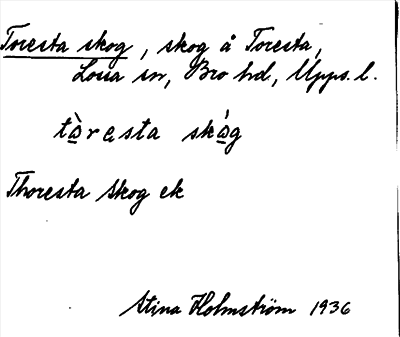 Toresta skog, skog å Toresta,
Lossa sn, Bro hd, Upps. l.
tò̱resta skó̱g
Thoresta Skog ek
Stina Holmström 1936